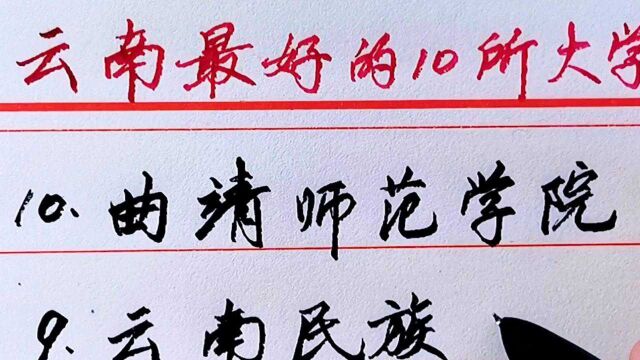 云南最好的10所大学
10.曲靖师范学院
9.云南民族